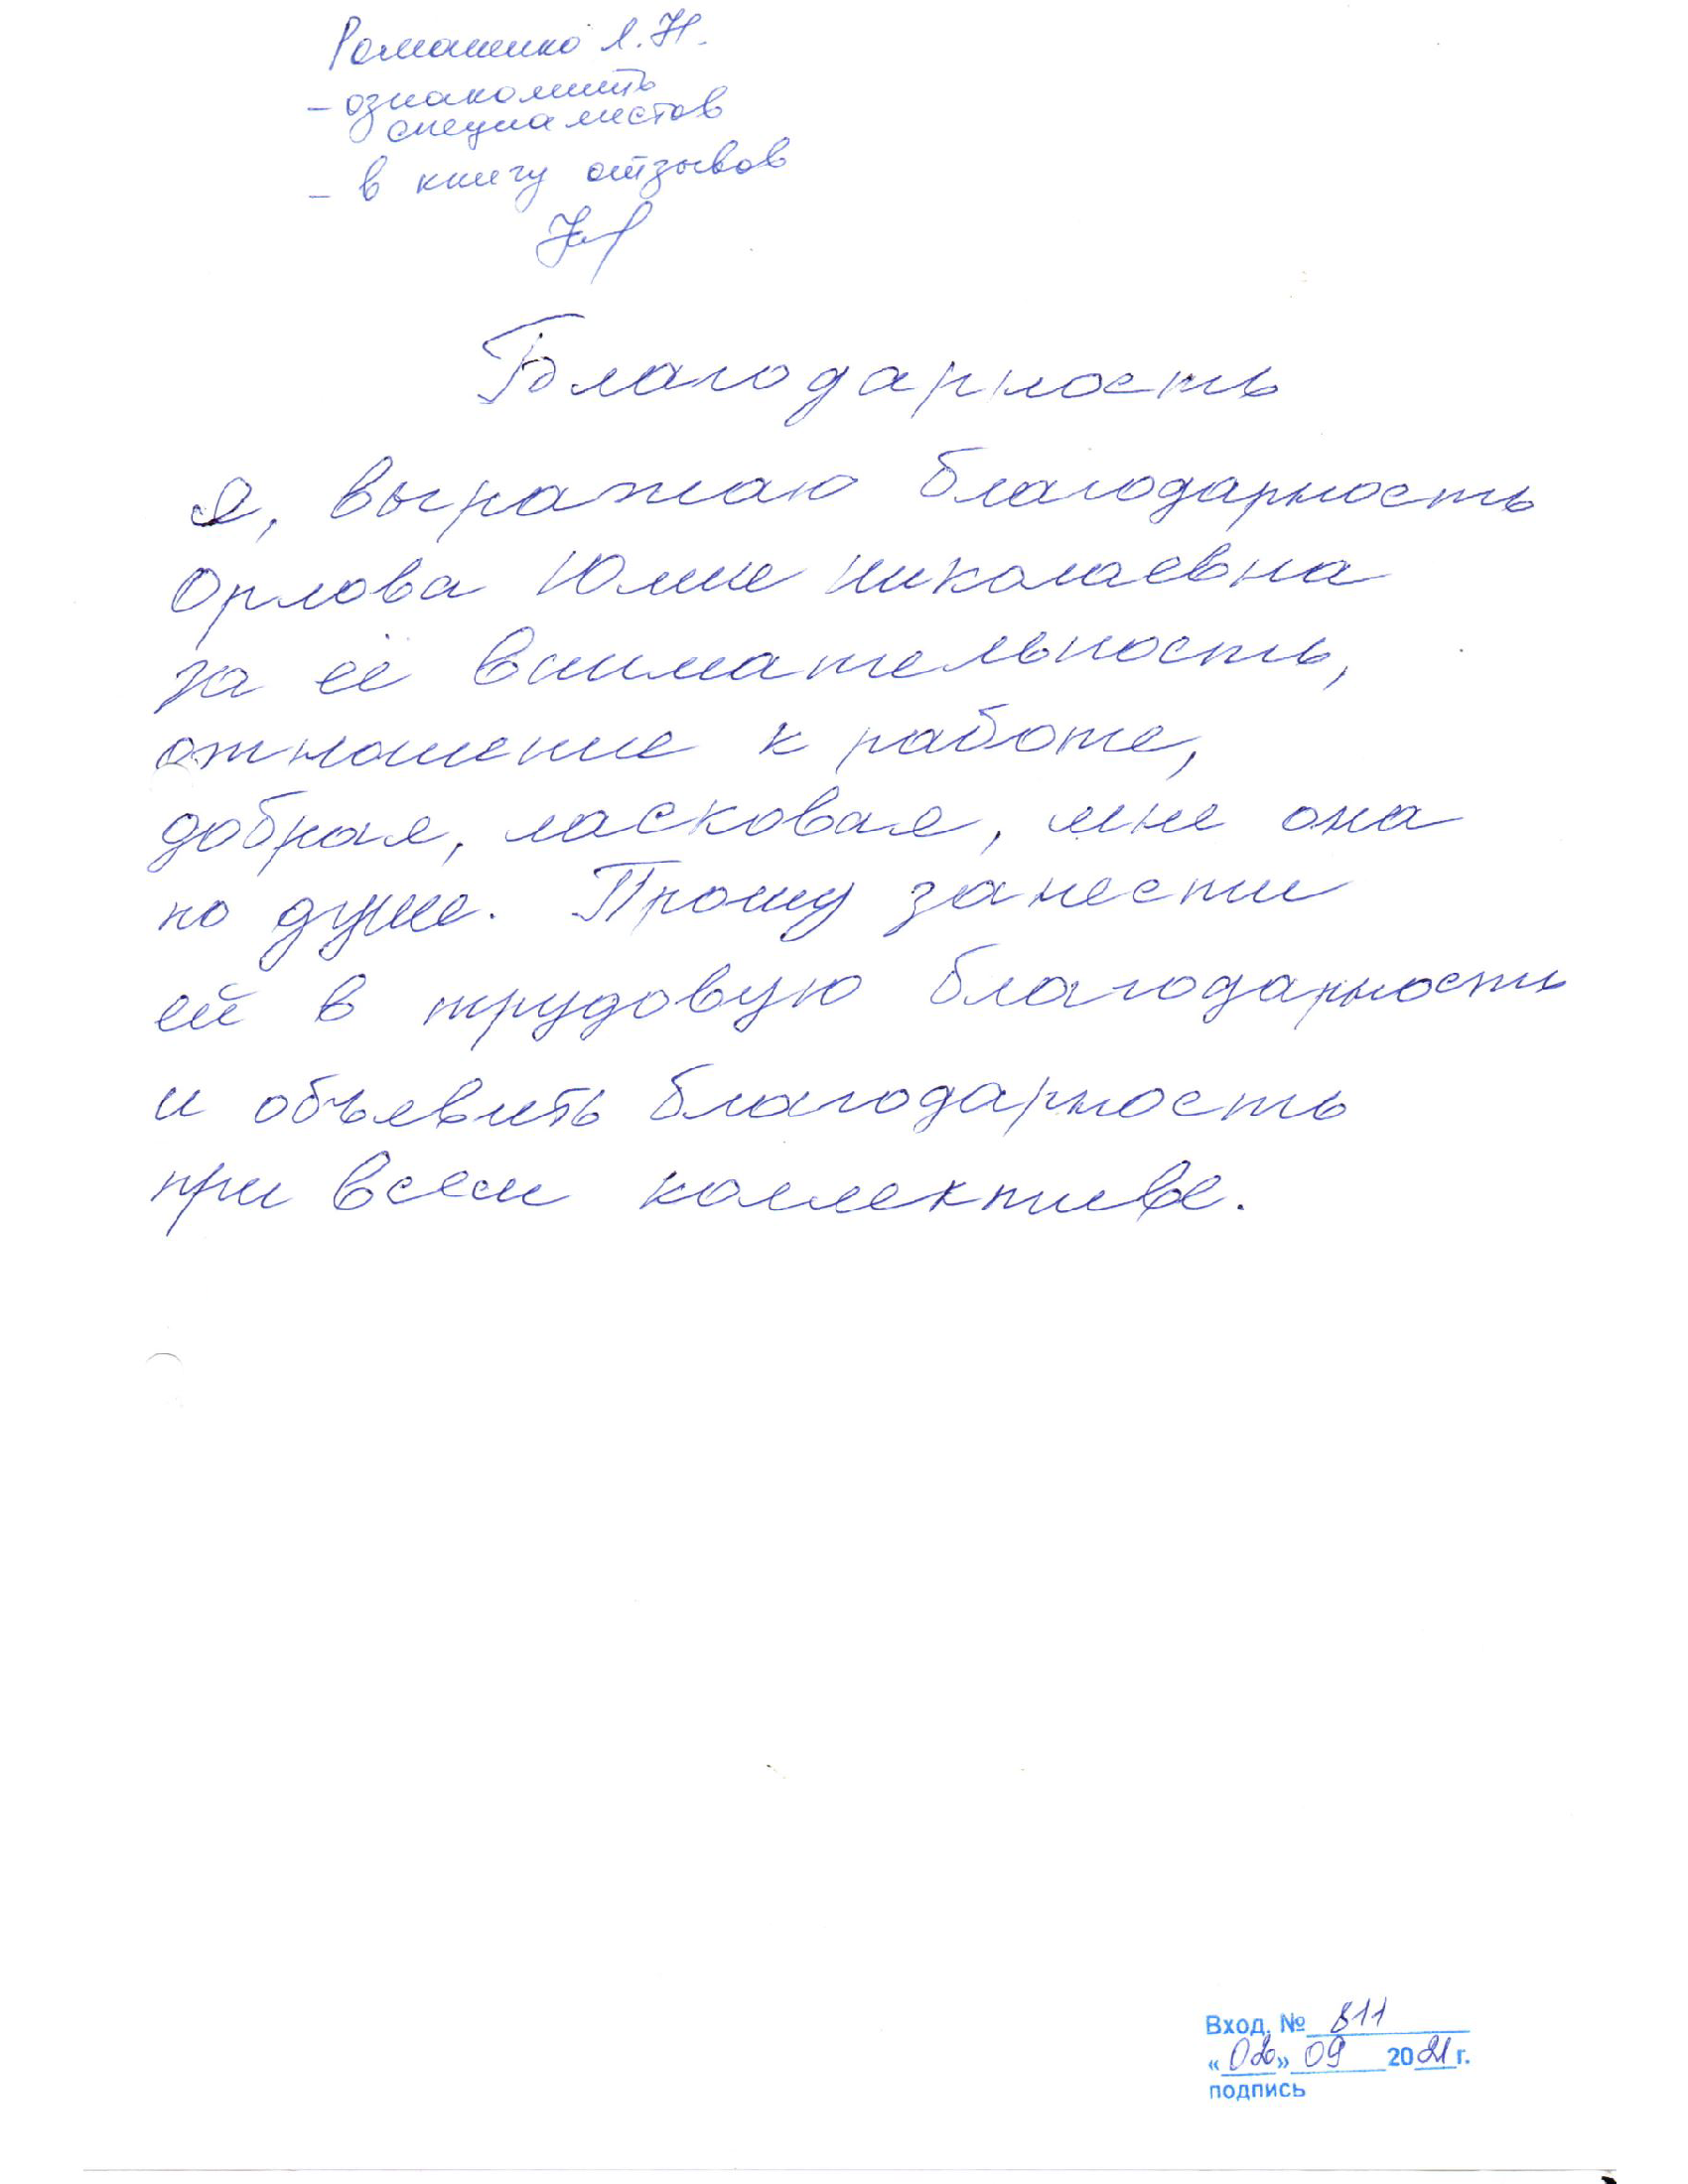 Ромашенко Л.Н.
- ознакомить
специалистов
- в книгу отзывов
Благодарность
Я, выражаю благодарность
Орлова Юлие Николаевна
за её внимательность,
отношение к работе,
добрая, ласковая, мне она
по душе. Прошу занести
ей в трудовую благодарность
и объявить благодарность
при всем коллективе.
Вход. № 811
«02» 09 2021 г.
подпись